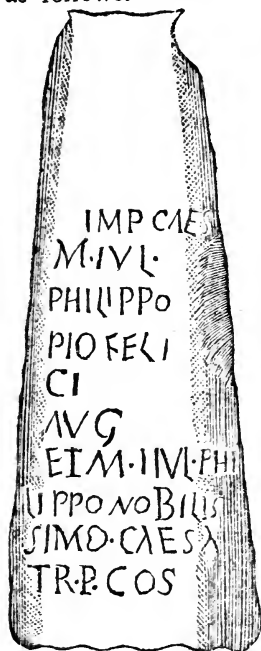 as follows
IMP CAES
M·IVL·
PHILIPPO
PIO FELI
CI
AVG
ETM·IIVL·PHI
LIPPO NOBILIS
SIMO·CAESA
TR·P·COS